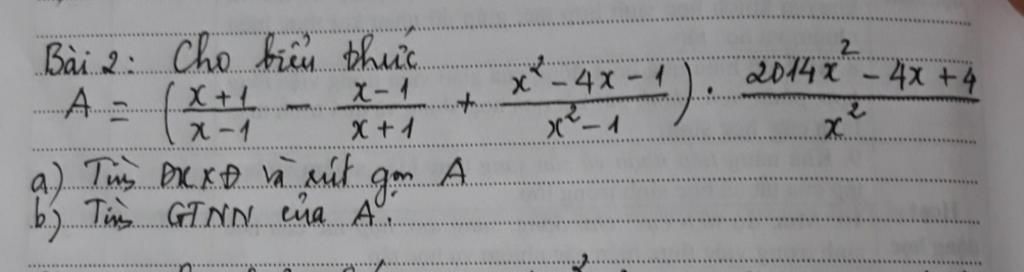 Bài 2: Cho biểu thức
A = (x+1/x-1 - x-1/x+1 + x²-4x-1/x²-1) . 2014x²-4x+4/x²
a) Tìm ĐKXĐ và rút gọn A
b) Tìm GTNN của A.